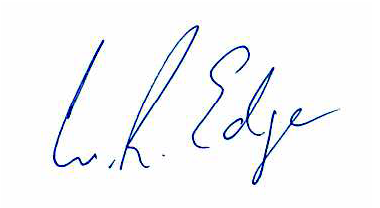 W. R. Edge